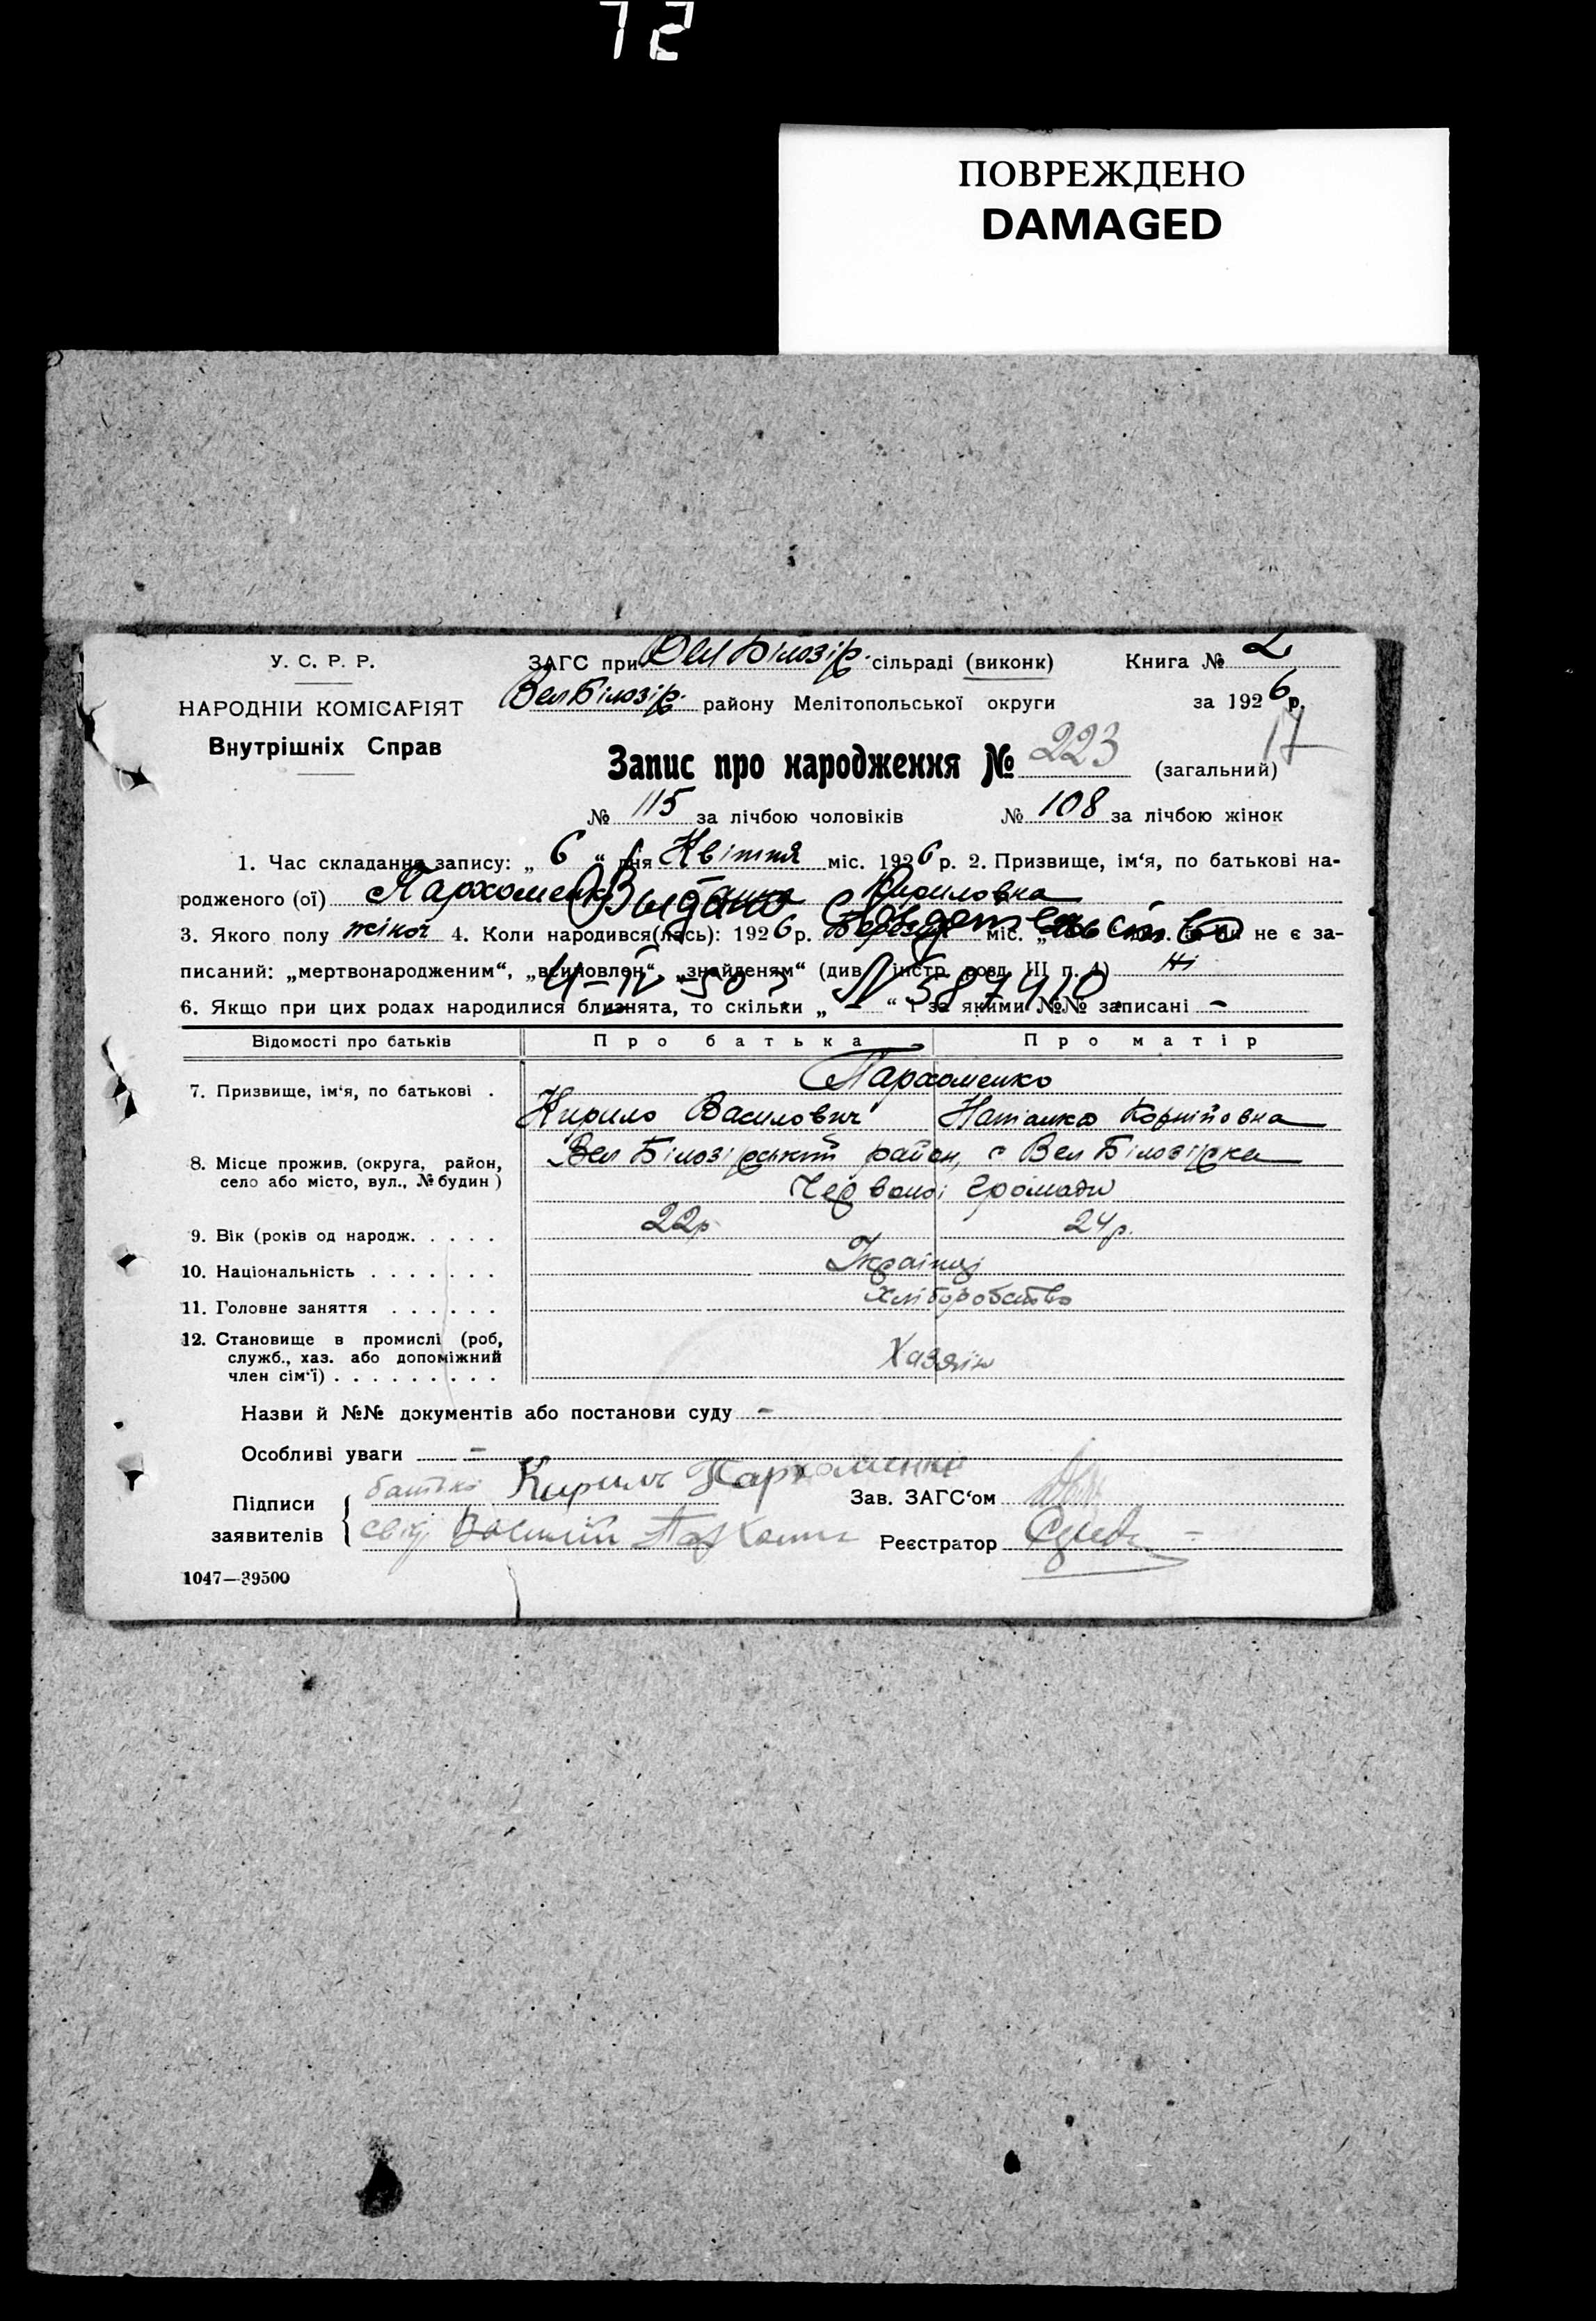 72
ПОВРЕЖДЕНО
DAMAGED
У. С. Р. Р.
ЗАГС при Вел Білозір. сільраді (виконк) Книга № 2
НАРОДНІЙ КОМІСАРІЯТ
Вел Білозір. району Мелітопольської округи за 1926 р.
Внутрішніх Справ
17
Запис про народження № 223 (загальний)
№ 115 за лічбою чоловіків № 108 за лічбою жінок
1. Час складання запису: „ 6 “ дня Квітня міс. 1926 р. 2. Призвище, ім‘я, по батькові на-
родженого (ої) Пархоменко Кириловна
Выдано Свидетельство
3. Якого полу жіноч 4. Коли народився(лась): 1926 р. Березня міс. „ не є за-
писаний: „мертвонародженим“, „всиновлен“, „знайденям“ (див. інстр. розд. III п. 4) Ні
4-IV-50 г. № 587410
6. Якщо при цих родах народилися близнята, то скільки „ — “ і за якими №№ записані —
Відомості про батьків Про батька Про матір
Пархоменко
7. Призвище, ім‘я, по батькові .
Кирило Василович Наталка Корніївна
8. Місце прожив. (округа, район, село або місто, вул., № будин)
Вел Білозірський район, с Вел Білозірка
Червоної громади
9. Вік (років од народж. . . . . 22р 24р.
10. Національність . . . . . . . Українці
11. Головне заняття . . . . . . хліборобство
12. Становище в промислі (роб,
служб., хаз. або допоміжний
член сім‘ї) . . . . . . . . . Хазяїн
Назви й №№ документів або постанови суду —
Особливі уваги —
Підписи заявителів
батько Кирилъ Пархоменко
Зав. ЗАГС‘ом
свід Василій Пархоменко
Реєстратор
1047—39500